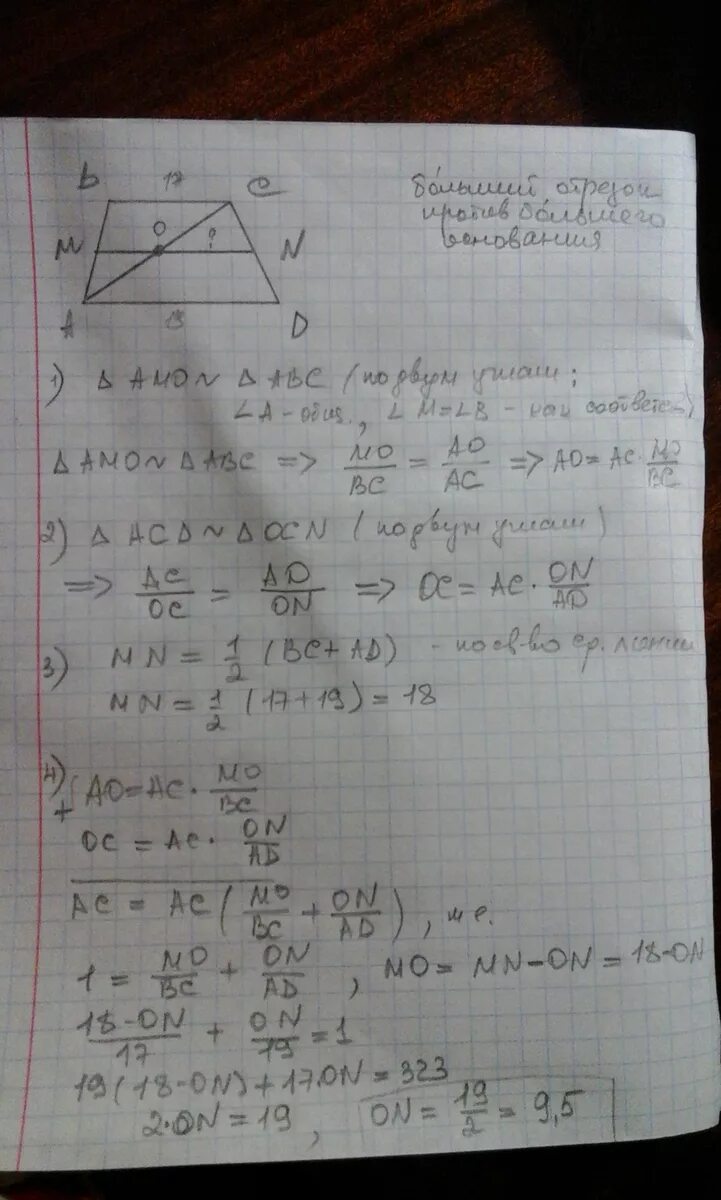 B 17 C
больший отрезок
против большего
основания
M O ? N
A 19 D
1) Δ AMO ~ Δ ABC (по двум углам;
∠A - общ., ∠M = ∠B - как соответств)
Δ AMO ~ Δ ABC => MO/BC = AO/AC => AO = AC · MO/BC
2) Δ ACD ~ Δ OCN (по двум углам)
=> AC/OC = AD/ON => OC = AC · ON/AD
3) MN = 1/2 (BC + AD) - по св-во ср. линии
MN = 1/2 (17 + 19) = 18
4) + { AO = AC · MO/BC
OC = AC · ON/AD
AC = AC (MO/BC + ON/AD), т.е.
1 = MO/BC + ON/AD, MO = MN - ON = 18 - ON
18 - ON/17 + ON/19 = 1
19 (18 - ON) + 17 · ON = 323
2 · ON = 19, ON = 19/2 = 9,5